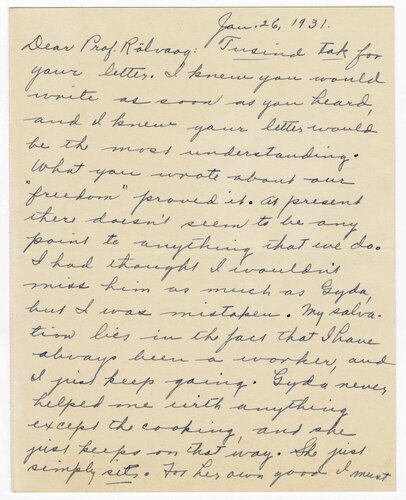 Jan. 26, 1931.
Dear Prof. Rölvaag: Tusind tak for
your letter. I knew you would
write as soon as you heard,
and I knew your letter would
be the most understanding.
What you wrote about our
"freedom" proved it. At present
there doesn't seem to be any
point to anything that we do.
I had thought I wouldn't
miss him as much as Gyda,
but I was mistaken. My salva-
tion lies in the fact that I have
always been a worker, and
I just keep going. Gyda never
helped me with anything
except the cooking, and she
just keeps on that way. She just
simply sits. For her own good I must